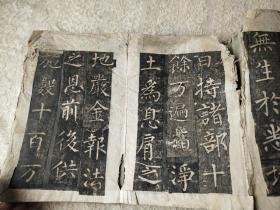 無生於悉
日持諸部十
餘万遍指淨
土為息肩之
地嚴金報法
之恩前後供
施數十百万